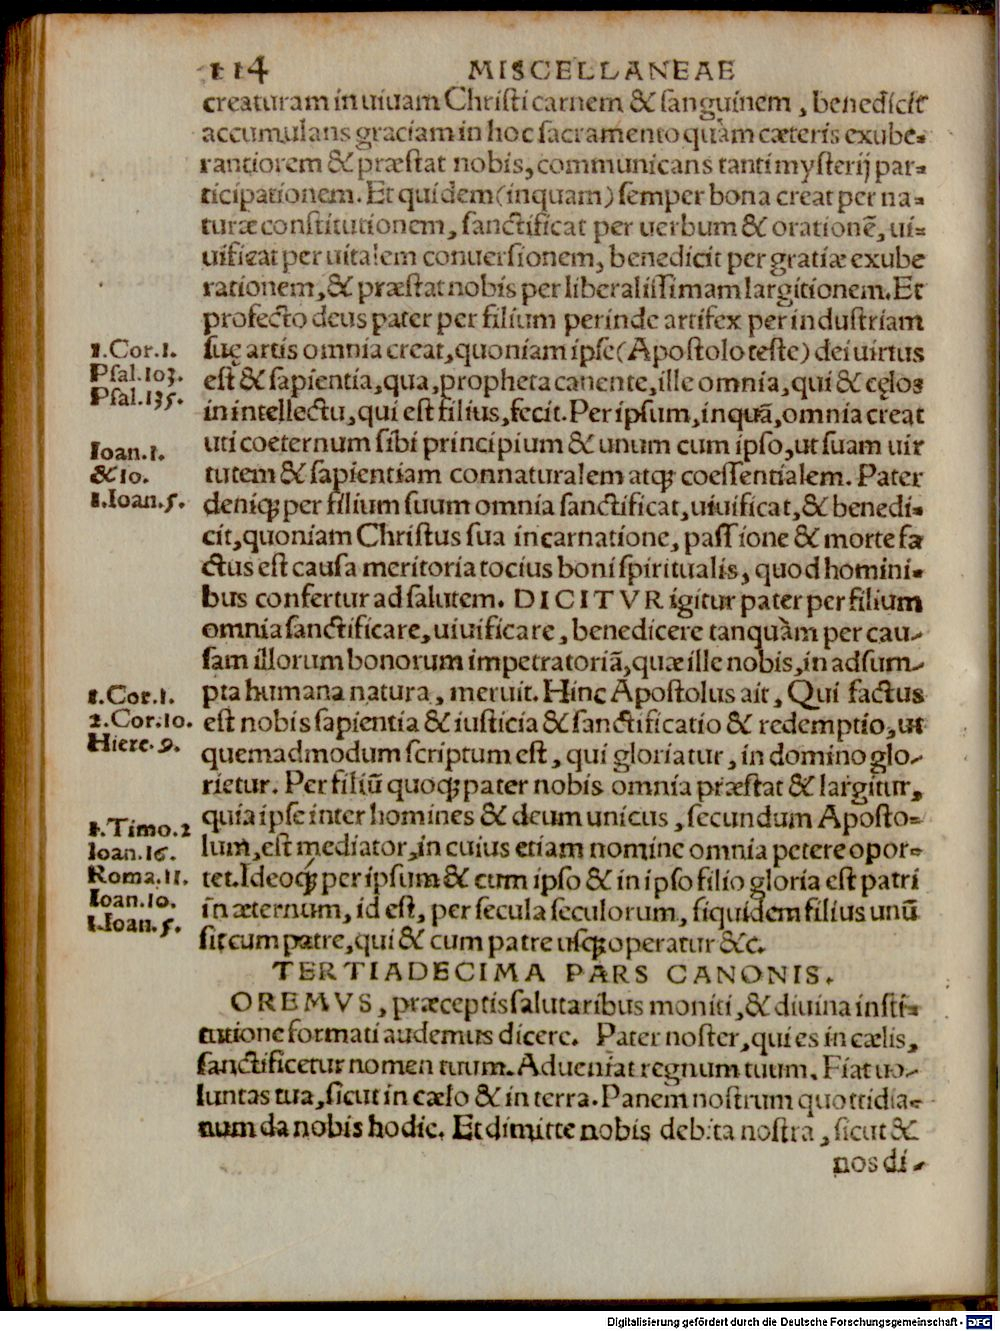 114 MISCELLANEAE
creaturam in uiuam Christi carnem & sanguinem, benedicit
accumulans graciam in hoc sacramento quàm cæteris exube-
rantiorem & præstat nobis, communicans tanti mysterij par-
ticipationem. Et quidem (inquam) semper bona creat per na-
turæ constitutionem, sanctificat per uerbum & orationē, ui-
uificat per uitalem conuersionem, benedicit per gratiæ exube
rationem, & præstat nobis per liberalissimam largitionem. Et
profecto deus pater per filium perinde artifex per industriam
1.Cor.1. suę artis omnia creat, quoniam ipse (Apostolo teste) dei uirtus
Psal.103. est & sapientia, qua, propheta canente, ille omnia, qui & cęlos
Psal.135. in intellectu, qui est filius, fecit. Per ipsum, inquā, omnia creat
Ioan.1. uti coeternum sibi principium & unum cum ipso, ut suam uir
&10. tutem & sapientiam connaturalem atq; coessentialem. Pater
1.Ioan.5. deniq; per filium suum omnia sanctificat, uiuificat, & benedi-
cit, quoniam Christus sua incarnatione, passione & morte fa
ctus est causa meritoria tocius boni spiritualis, quod homini-
bus confertur ad salutem. DICITVR igitur pater per filium
omnia sanctificare, uiuificare, benedicere tanquàm per cau-
sam illorum bonorum impetratoriā, quæ ille nobis, in adsum-
1.Cor.1. pta humana natura, meruit. Hinc Apostolus ait, Qui factus
2.Cor.10. est nobis sapientia & iusticia & sanctificatio & redemptio, ut
Hiere.9. quemadmodum scriptum est, qui gloriatur, in domino glo-
rietur. Per filiū quoq; pater nobis omnia præstat & largitur,
1.Timo.2 quia ipse inter homines & deum unicus, secundum Aposto-
Ioan.16. lum, est mediator, in cuius etiam nomine omnia petere opor-
Roma.11. tet. Ideoq; per ipsum & cum ipso & in ipso filio gloria est patri
Ioan.10. in æternum, id est, per secula seculorum, siquidem filius unū
1.Ioan.5. sit cum patre, qui & cum patre usq; operatur &c.
TERTIADECIMA PARS CANONIS.
OREMVS, præceptis salutaribus moniti, & diuina insti-
tutione formati audemus dicere. Pater noster, qui es in cælis,
sanctificetur nomen tuum. Adueniat regnum tuum. Fiat uo-
luntas tua, sicut in cælo & in terra. Panem nostrum quottidia-
num da nobis hodie. Et dimitte nobis debita nostra, sicut &
nos di-
Digitalisierung gefördert durch die Deutsche Forschungsgemeinschaft - DFG